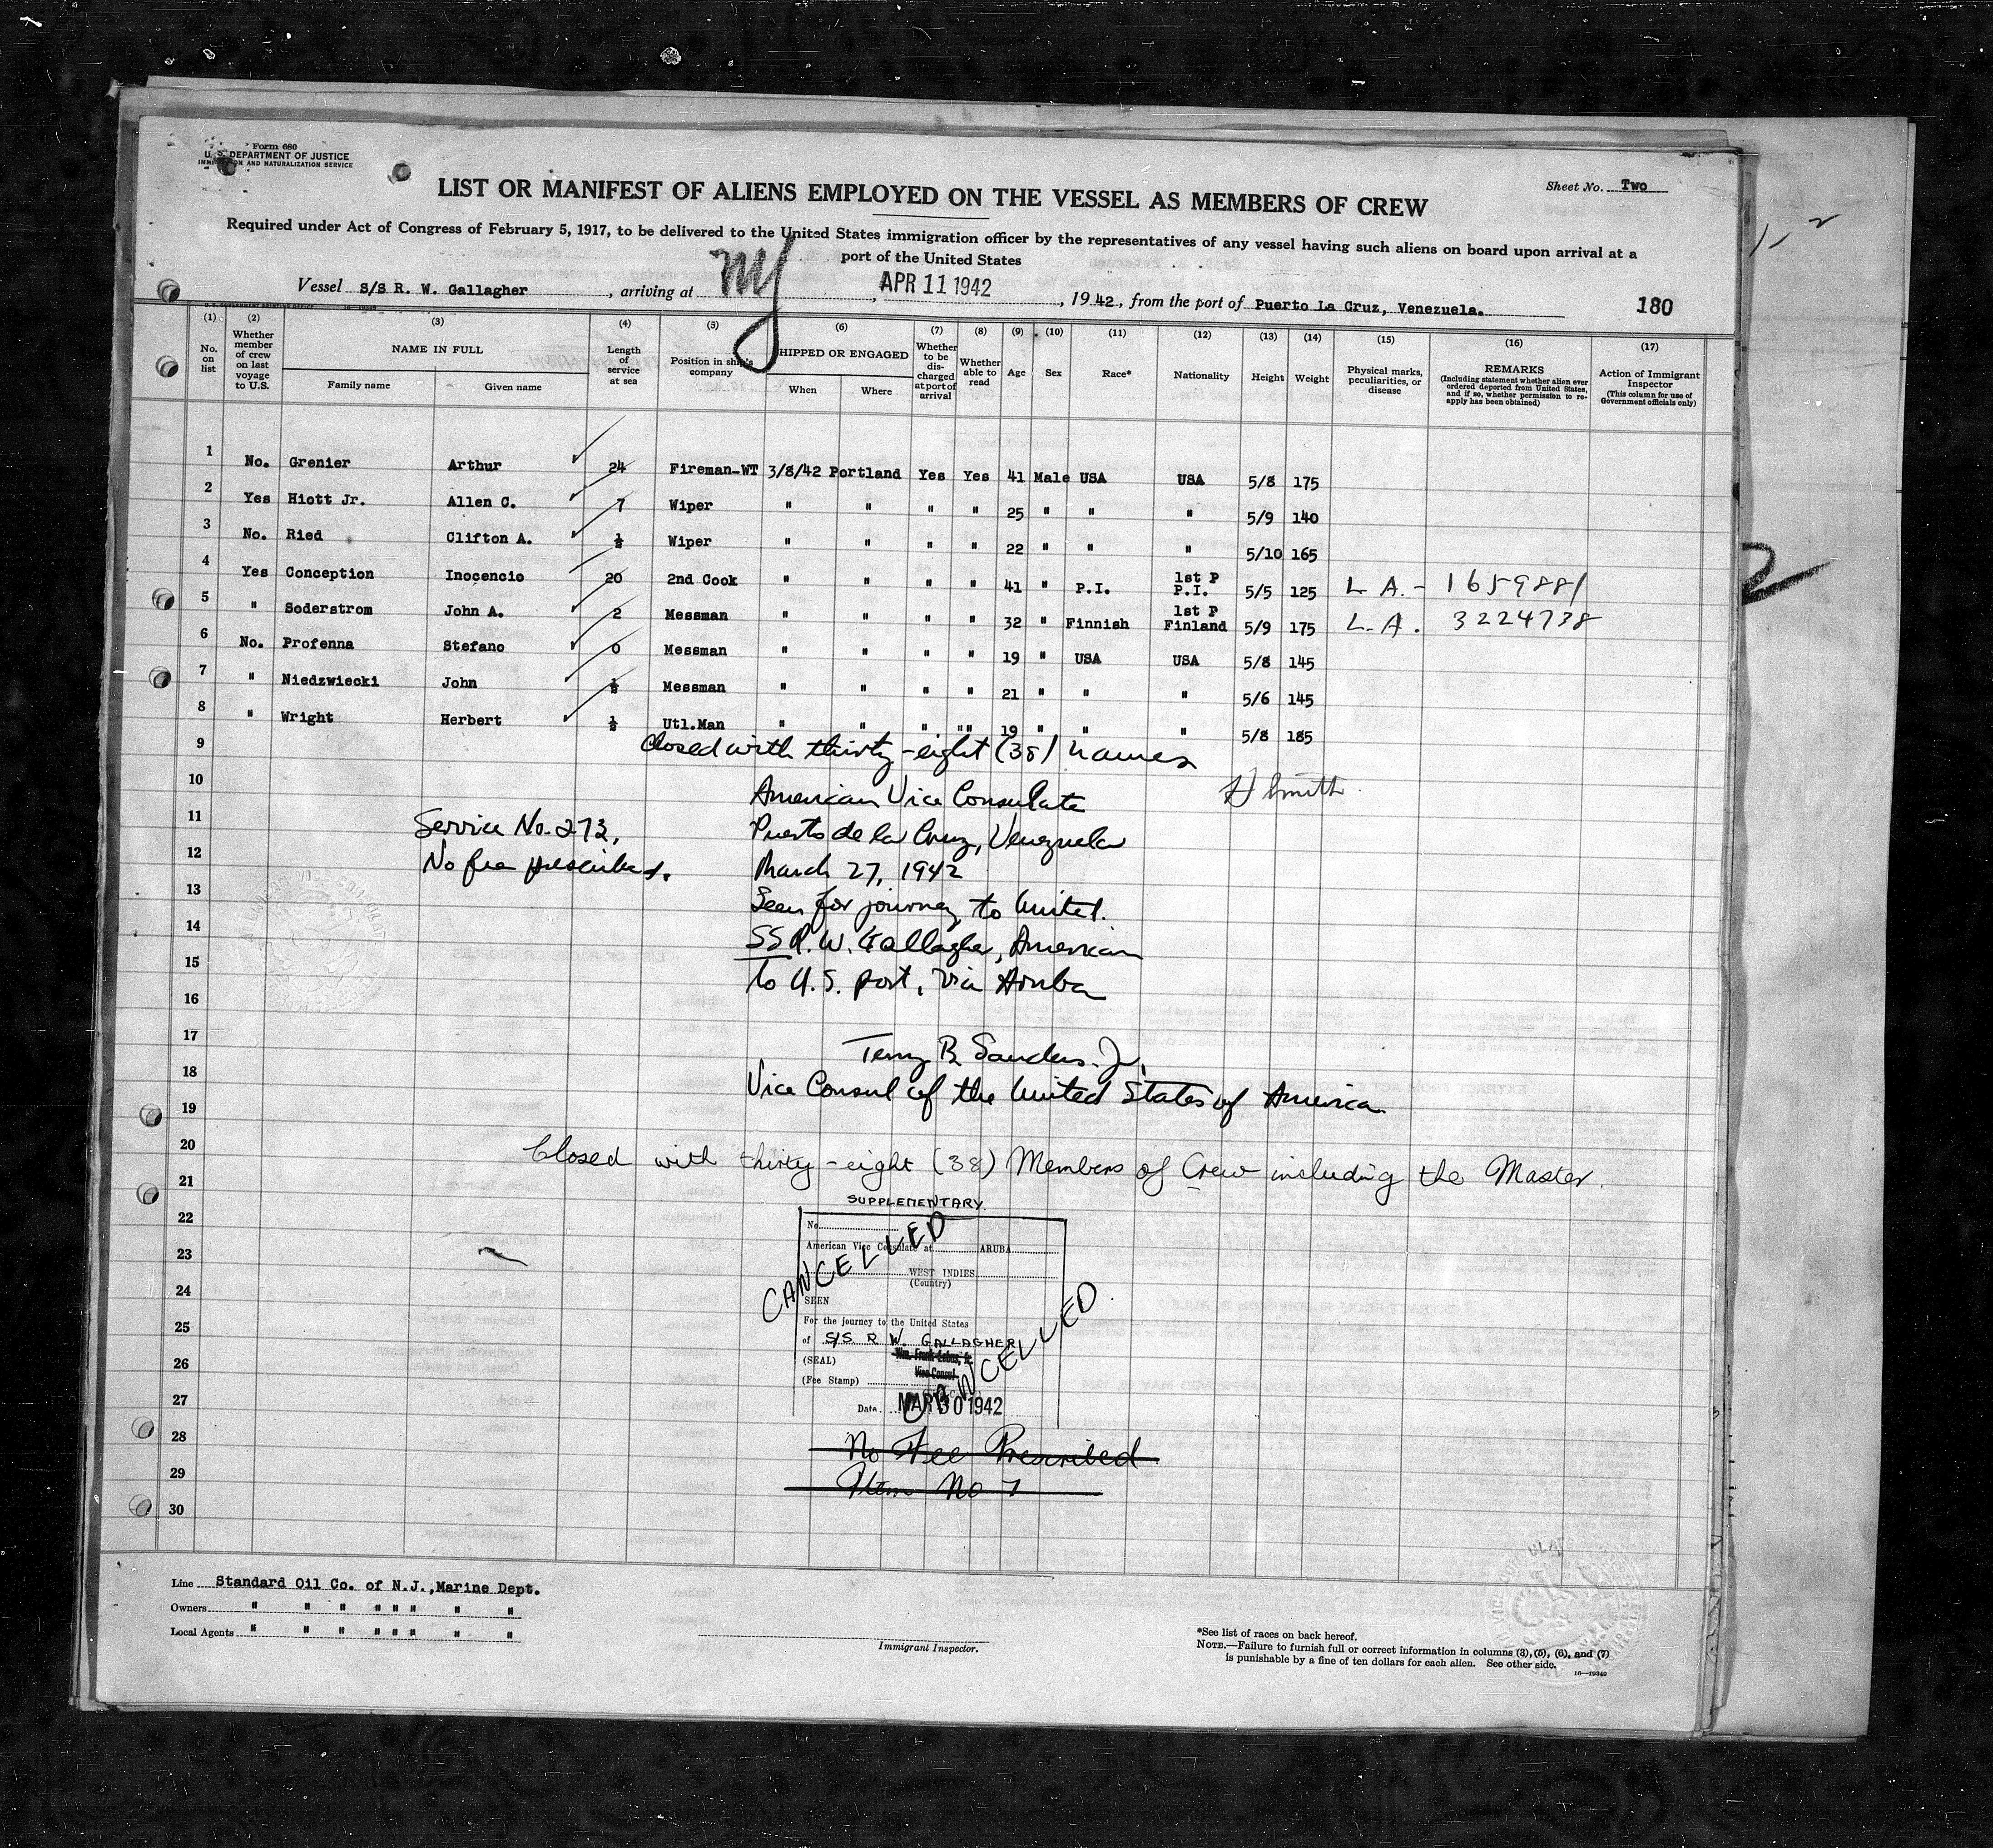 Form 680
U. S. DEPARTMENT OF JUSTICE
IMMIGRATION AND NATURALIZATION SERVICE
Sheet No. Two
LIST OR MANIFEST OF ALIENS EMPLOYED ON THE VESSEL AS MEMBERS OF CREW
Required under Act of Congress of February 5, 1917, to be delivered to the United States immigration officer by the representatives of any vessel having such aliens on board upon arrival at a
port of the United States
Vessel S/S R. W. Gallagher, arriving at NY, APR 11 1942, 1942, from the port of Puerto La Cruz, Venezuela. 180
(1) (2) (3) (4) (5) (6) (7) (8) (9) (10) (11) (12) (13) (14) (15) (16) (17)
No. on list
Whether member of crew on last voyage to U.S.
NAME IN FULL
Family name
Given name
Length of service at sea
Position in ship's company
SHIPPED OR ENGAGED
When
Where
Whether to be discharged at port of arrival
Whether able to read
Age
Sex
Race*
Nationality
Height
Weight
Physical marks, peculiarities, or disease
REMARKS
(Including statement whether alien ever ordered deported from United States, and if so, whether permission to reapply has been obtained)
Action of Immigrant Inspector
(This column for use of Government officials only)
1 No. Grenier Arthur 24 Fireman-WT 3/8/42 Portland Yes Yes 41 Male USA USA 5/8 175
2 Yes Hiott Jr. Allen C. 7 Wiper " " " " 25 " " " 5/9 140
3 No. Ried Clifton A. ½ Wiper " " " " 22 " " " 5/10 165
4 Yes Conception Inocencio 20 2nd Cook " " " " 41 " P.I. 1st P P.I. 5/5 125 L A. - 1659881
5 " Soderstrom John A. 2 Messman " " " " 32 " Finnish 1st P Finland 5/9 175 L.A. 3224738
6 No. Profenna Stefano 0 Messman " " " " 19 " USA USA 5/8 145
7 " Niedzwiecki John ½ Messman " " " " 21 " " " 5/6 145
8 " Wright Herbert ½ Utl.Man " " " "" 19 " " " 5/8 185
9
Closed with thirty-eight (38) names
10
American Vice Consulate
H Smith
11
Service No. 273,
Puerto de la Cruz, Venezuela
12
No fee prescribed.
March 27, 1942
13
Seen for journey to United.
14
SS R. W. Gallagher, American
15
to U.S. port, via Aruba
16
17
Terry B. Sanders Jr.
18
Vice Consul of the United States of America
19
20
Closed with thirty-eight (38) Members of Crew including the Master.
21
SUPPLEMENTARY
22
No.
23
American Vice Consulate at ARUBA
WEST INDIES
(Country)
24
SEEN
25
For the journey to the United States
of S/S R W. GALLAGHER
26
(SEAL)
Vice Consul
(Fee Stamp)
27
Date. MAR 30 1942
CANCELLED
CANCELLED
28
No Fee Prescribed
29
Item No 7
30
Line Standard Oil Co. of N.J.,Marine Dept.
Owners " " " " " " " "
Local Agents " " " " " " " "
Immigrant Inspector.
*See list of races on back hereof.
NOTE.—Failure to furnish full or correct information in columns (3), (5), (6), and (7)
is punishable by a fine of ten dollars for each alien. See other side.
16—19340